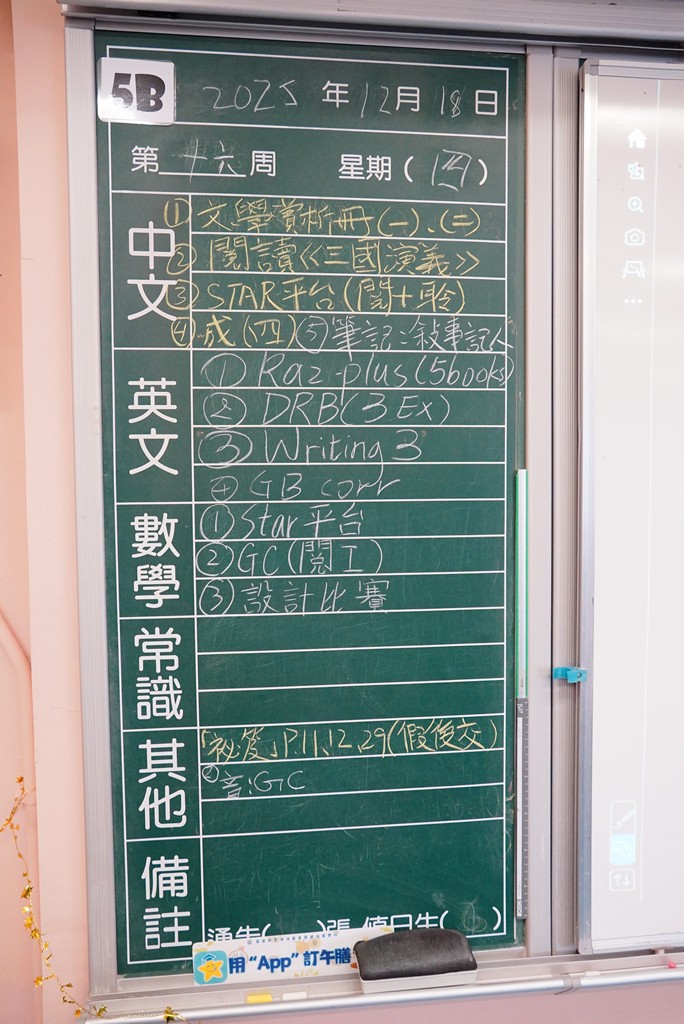 5B
2025 年 12 月 18 日
第 十六 周 星期 ( 四 )
中文
① 文學賞析冊(一)、(二)
② 閱讀《三國演義》
③ STAR平台(閱+聆)
④ 成(四) ⑤ 筆記:敘事記人
英文
① Raz-plus (5books)
② DRB(3 Ex)
③ Writing 3
④ GB corr
數學
① Star平台
② GC(閱工)
③ 設計比賽
常識
其他
P.11,12,29(假後交)
② 音:GC
備註
通告( )張 值日生( )
用 "App" 訂午膳